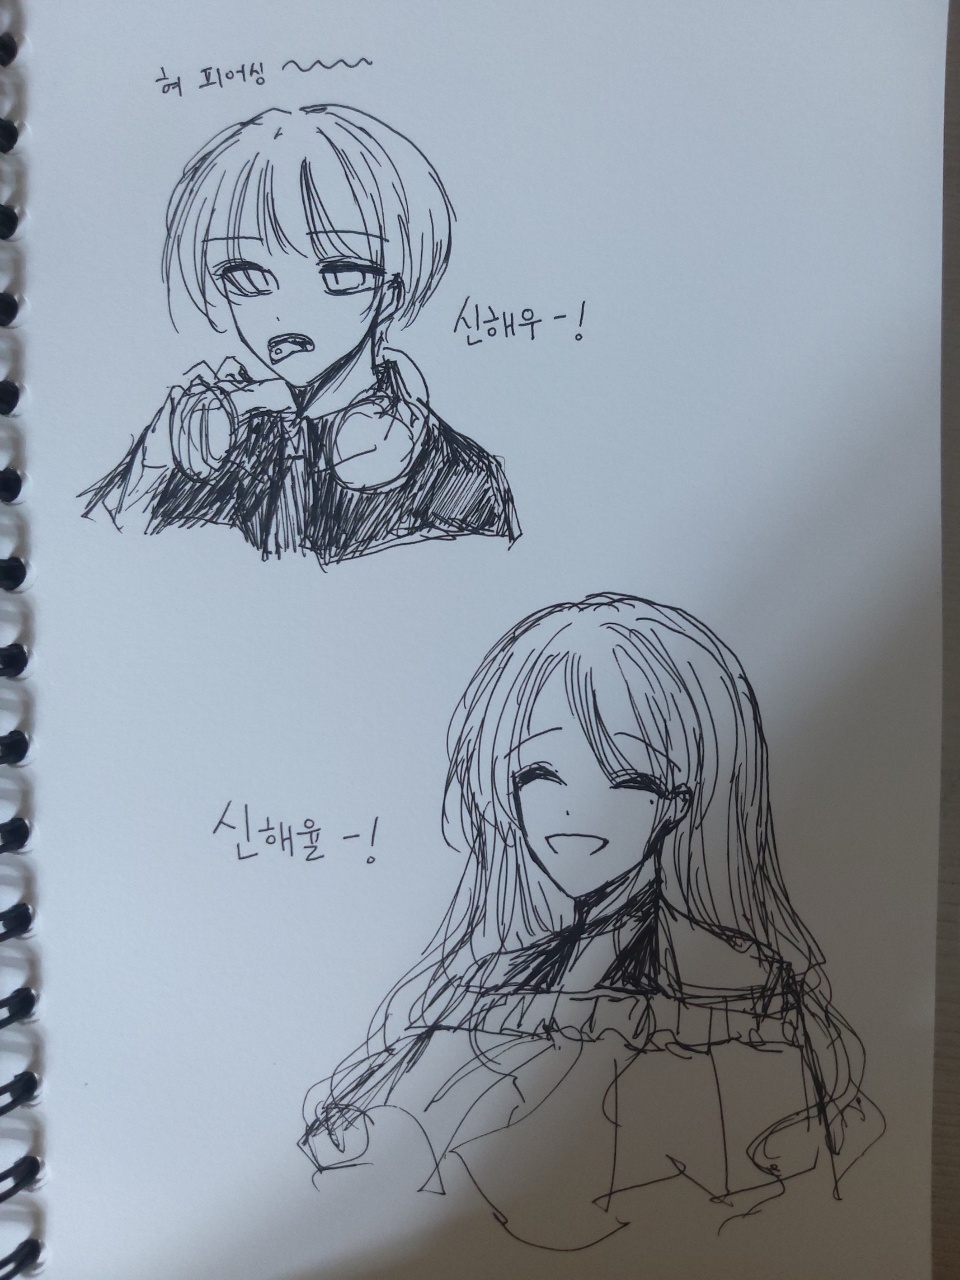 혀 피어싱 ~~~~
신해우-!
신해율-!